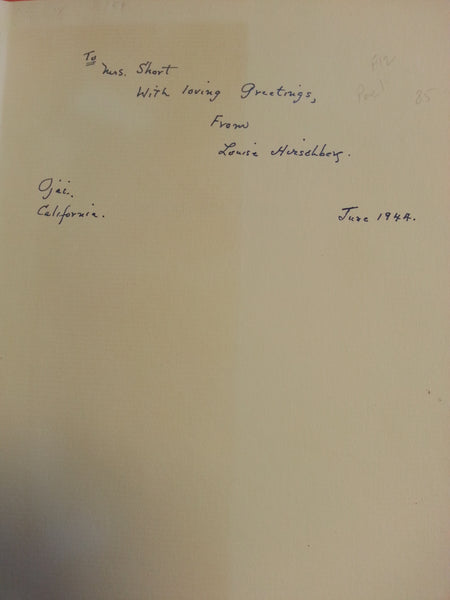 To
Mrs. Short
With loving Greetings,
From
Louise Hirschberg.
Ojai.
California.
June 1944.
85